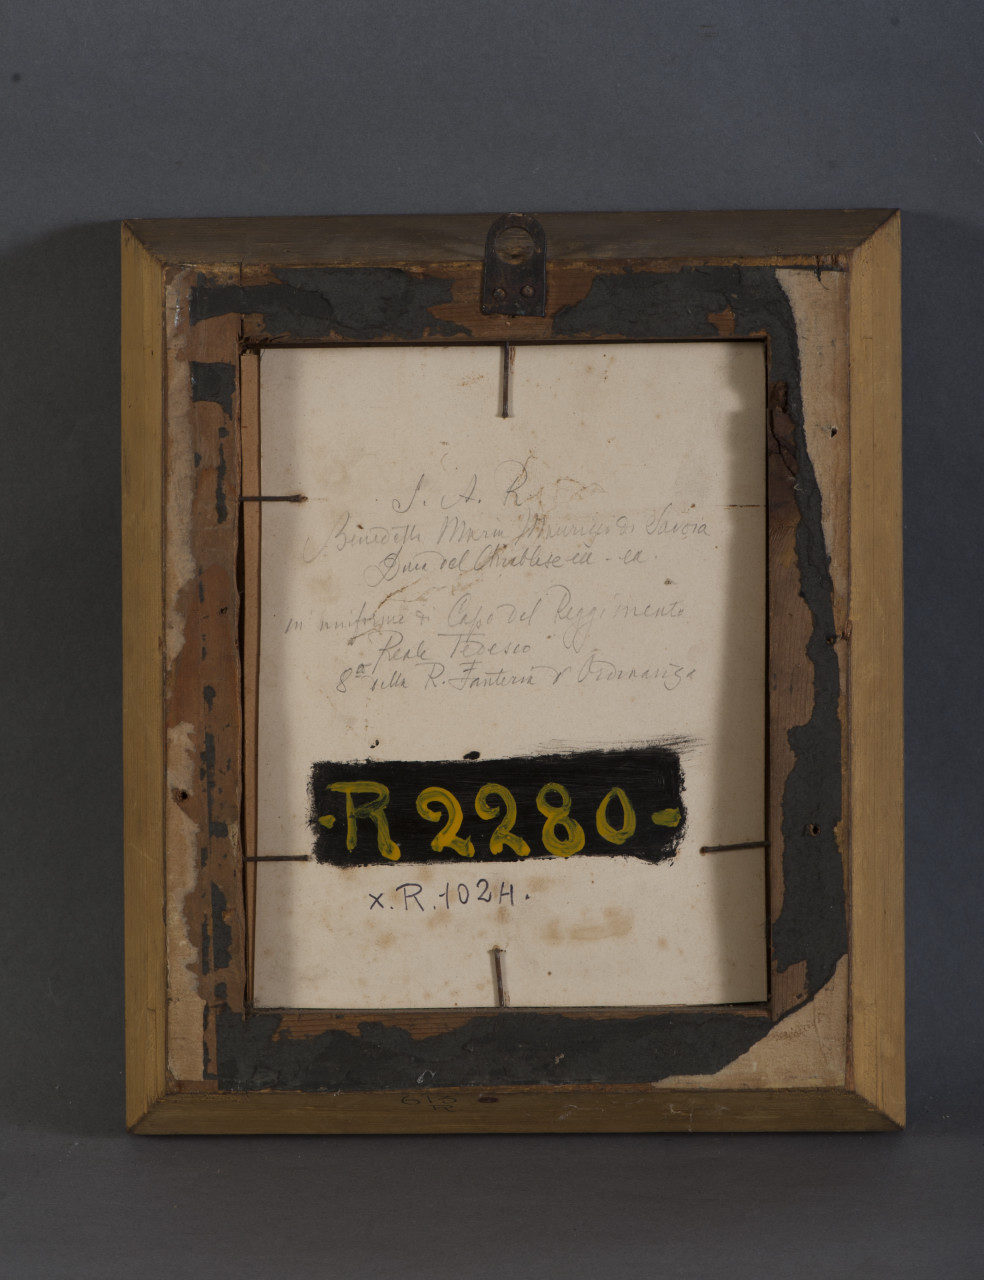 S. A. R.
Benedetto Maria Maurizio di Savoia
Duca del Chiablese ea - ea.
in uniforme di Capo del Reggimento
Reale Tedesco
8ª della R. Fanteria d'Ordinanza
- R 2280 -
x. R. 1024.